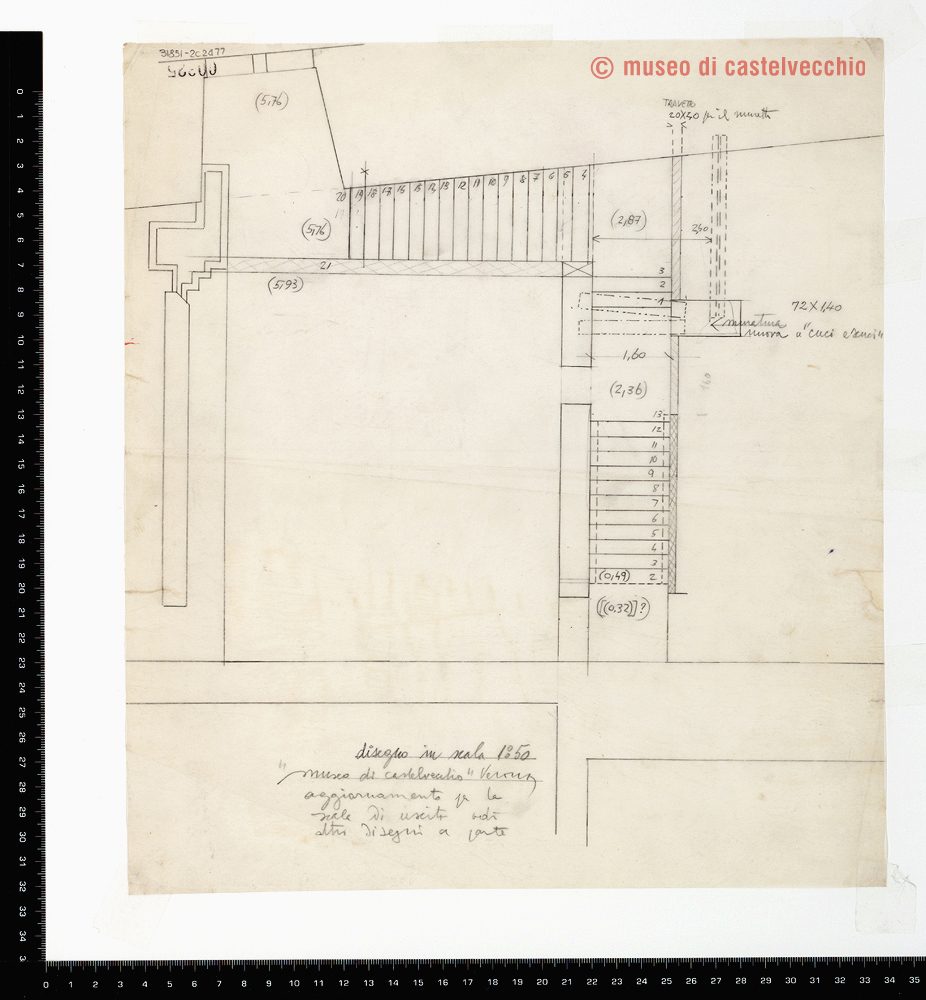 31851-2c2477
© museo di castelvecchio
(5,76)
TRAVETTO
20X40 per il muretto
20 19 18 17 16 15 14 13 12 11 10 9 8 7 6 5 4
(5,76)
(2,87)
2,40
21
(5,93)
3
2
1
72X1,40
muratura
nuova a "cuci e scuci"
1,60
(2,36)
160
13
12
11
10
9
8
7
6
5
4
3
(0,49) 2
([(0,32)]?)
disegno in scala 1:50
"museo di castelvecchio" Verona
aggiornamento per la
scala di uscita vedi
altri disegni a parte
0 1 2 3 4 5 6 7 8 9 10 11 12 13 14 15 16 17 18 19 20 21 22 23 24 25 26 27 28 29 30 31 32 33 34
0 1 2 3 4 5 6 7 8 9 10 11 12 13 14 15 16 17 18 19 20 21 22 23 24 25 26 27 28 29 30 31 32 33 34 35